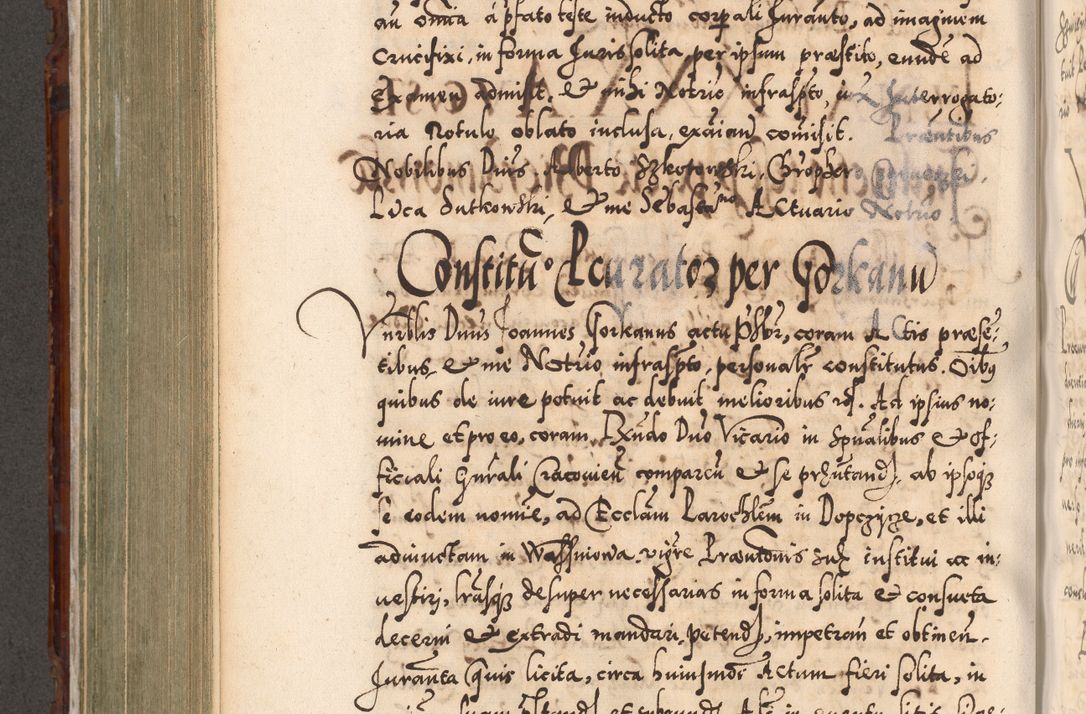 au omia a pfato teste inducto corpali Iuranto, ad imaginem
Crucifixi, in forma Iuris solita, per ipsum præstito, eundē ad
Examen admisit. Et mihi Notrio infrascpto, interrogato:
ria Rotulo oblato inclusa, exaiand comisit. Præntibus
Nobilibus Dnis Alberto Szkotowski, Gropler
Luca Sutkowski, Et me Sebastno Actuario Notrio
Constitū Pcurator per Gorkanū
Vnrblis Dnus Ioannes Gorkanus actu Psbr, coram Actis præsē:
tibus, Et me Notrio infrascpto, personalr constitutus. Oibus
quibus de iure potuit ac debuit melioribus ijs. Ad ipsius no:
mine et pro eo, coram Rndo Dno Vicario in Spualibus Et of:
ficiali Gnrali Cracovien comparen Et se prntand, ab ipsoqz
se eodem nomie, ad Ecclam Parochlem in Dopczyze, et illi
adiunctam in Wassniowa vigre Præntonis suæ institui ac in:
vestiri, lrasqz desuper necessarias in forma solita Et consueta
decerni Et extradi mandari petend, impetran et obtinen.
Iuranta quis licita, circa huiusmodi Actum fieri solita, in